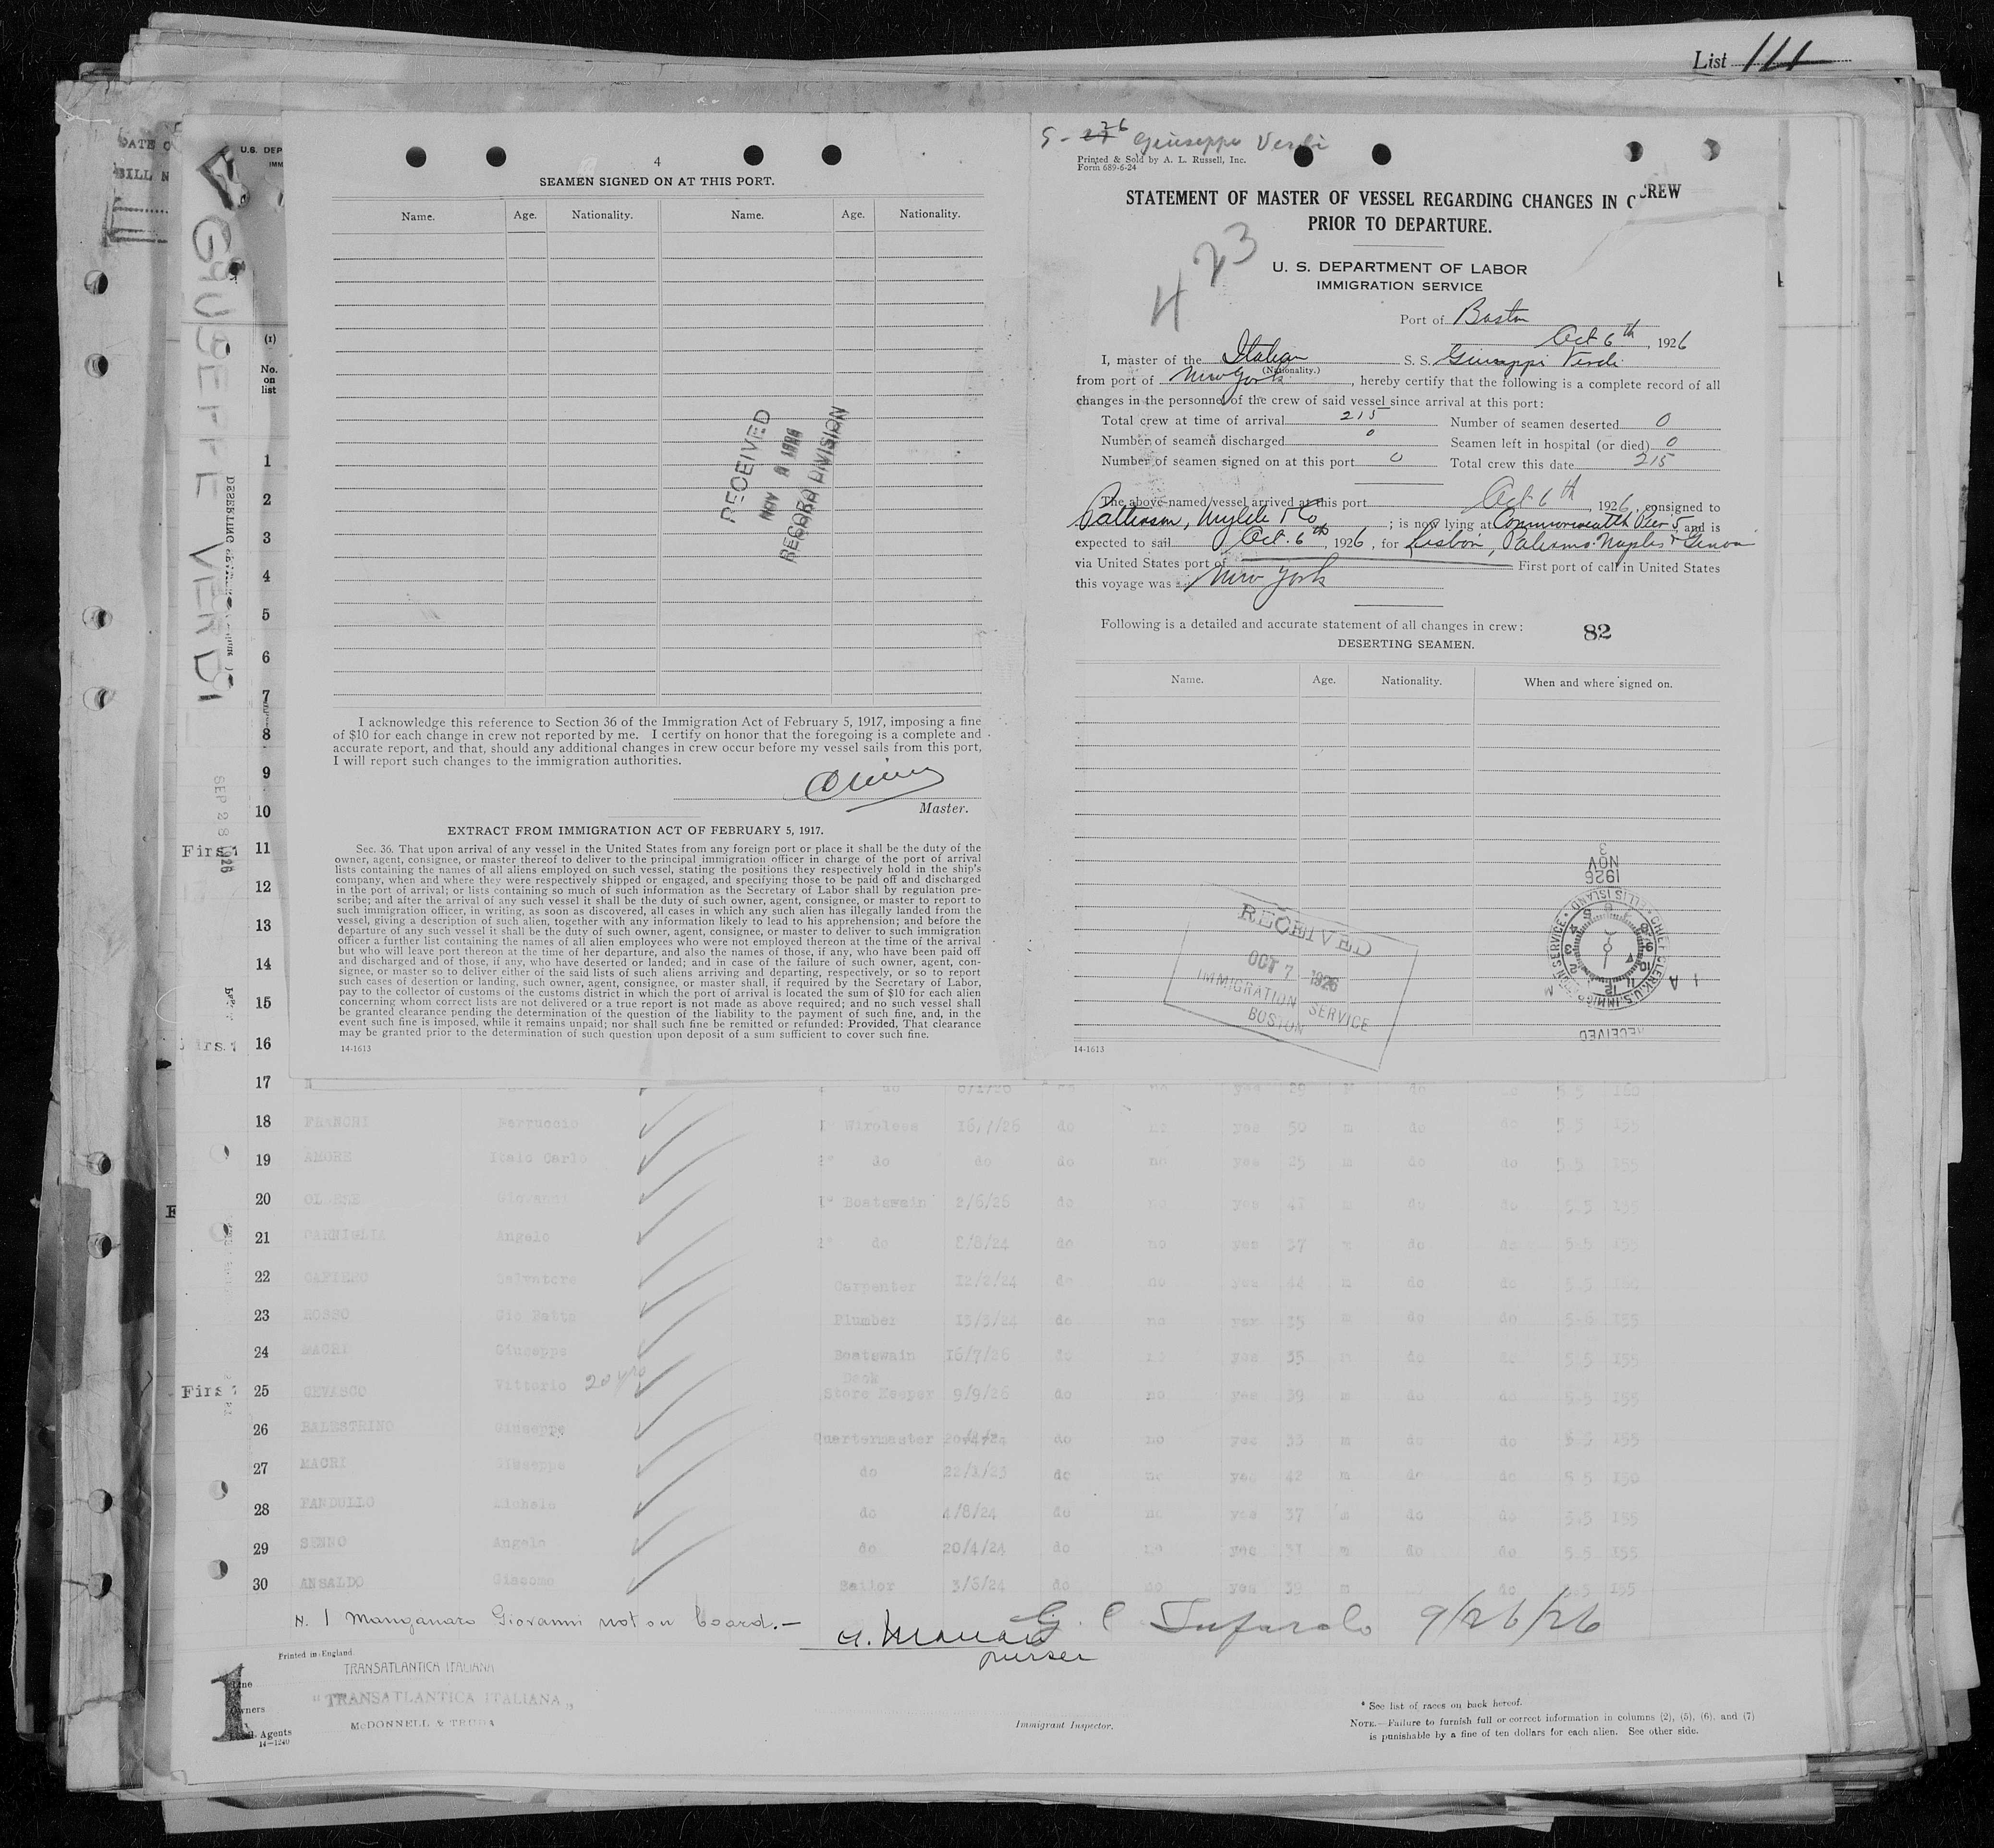 List 111
DATE O
BILL N
U.S. DEP
IMM
GIUSEPPE VERDI
(1)
No.
on
list
SEP 28 1926
4
SEAMEN SIGNED ON AT THIS PORT.
Name. Age. Nationality. Name. Age. Nationality.
RECEIVED
NOV
RECORD DIVISION
I acknowledge this reference to Section 36 of the Immigration Act of February 5, 1917, imposing a fine
of $10 for each change in crew not reported by me. I certify on honor that the foregoing is a complete and
accurate report, and that, should any additional changes in crew occur before my vessel sails from this port,
I will report such changes to the immigration authorities.
Master.
EXTRACT FROM IMMIGRATION ACT OF FEBRUARY 5, 1917.
Sec. 36. That upon arrival of any vessel in the United States from any foreign port or place it shall be the duty of the
owner, agent, consignee, or master thereof to deliver to the principal immigration officer in charge of the port of arrival
lists containing the names of all aliens employed on such vessel, stating the positions they respectively hold in the ship's
company, when and where they were respectively shipped or engaged, and specifying those to be paid off and discharged
in the port of arrival; or lists containing so much of such information as the Secretary of Labor shall by regulation pre-
scribe; and after the arrival of any such vessel it shall be the duty of such owner, agent, consignee, or master to report to
such immigration officer, in writing, as soon as discovered, all cases in which any such alien has illegally landed from the
vessel, giving a description of such alien, together with any information likely to lead to his apprehension; and before the
departure of any such vessel it shall be the duty of such owner, agent, consignee, or master to deliver to such immigration
officer a further list containing the names of all alien employees who were not employed thereon at the time of the arrival
but who will leave port thereon at the time of her departure, and also the names of those, if any, who have been paid off
and discharged and of those, if any, who have deserted or landed; and in case of the failure of such owner, agent, con-
signee, or master so to deliver either of the said lists of such aliens arriving and departing, respectively, or so to report
such cases of desertion or landing, such owner, agent, consignee, or master shall, if required by the Secretary of Labor,
pay to the collector of customs of the customs district in which the port of arrival is located the sum of $10 for each alien
concerning whom correct lists are not delivered or a true report is not made as above required; and no such vessel shall
be granted clearance pending the determination of the question of the liability to the payment of such fine, and, in the
event such fine is imposed, while it remains unpaid; nor shall such fine be remitted or refunded: Provided, That clearance
may be granted prior to the determination of such question upon deposit of a sum sufficient to cover such fine.
14-1613
5 - 26 Giuseppe Verdi
Printed & Sold by A. L. Russell, Inc.
Form 689-6-24
STATEMENT OF MASTER OF VESSEL REGARDING CHANGES IN CREW
PRIOR TO DEPARTURE.
423
U. S. DEPARTMENT OF LABOR
IMMIGRATION SERVICE
Port of Boston
Oct 6th, 1926
I, master of the Italian S. S. Giuseppi Verdi
(Nationality.)
from port of New York, hereby certify that the following is a complete record of all
changes in the personnel of the crew of said vessel since arrival at this port:
Total crew at time of arrival 215 Number of seamen deserted 0
Number of seamen discharged 0 Seamen left in hospital (or died) 0
Number of seamen signed on at this port 0 Total crew this date 215
The above-named vessel arrived at this port Oct 6th, 1926, consigned to
Patterson, Wylde & Co; is now lying at Commonwealth Pier 5, and is
expected to sail Oct. 6th, 1926, for Lisbon, Palermo Naples & Genoa
via United States port of First port of call in United States
this voyage was New York
Following is a detailed and accurate statement of all changes in crew:
82
DESERTING SEAMEN.
Name. Age. Nationality. When and where signed on.
RECEIVED
OCT 7 1926
IMMIGRATION SERVICE
BOSTON
1926
NOV
3
CHIEF CLERK, U.S. IMMIGRATION SERVICE ELLIS ISLAND
RECEIVED
14-1613
1
2
3
4
5
6
7
8
9
10
First 11
12
13
14
15
16
17 do yes 29
18 Ferruccio 1° Wireless 16/7/26 do no yes 50 m do do 5 5 155
19 AMORE Italo Carlo 2° do do do no yes 25 m do do 5 5 155
20 Giovanni 1° Boatswain 2/6/26 do no yes 47 m do do 5 5 155
21 CARNIGLIA Angelo 2° do 8/8/24 do no yes 37 m do do 5 5 155
22 CAFIERO Salvatore Carpenter 12/2/24 do no yes 44 m do do 5 5 160
23 ROSSO Gio Batta Plumber 13/3/24 do no yes 35 m do do 5 6 155
24 MACRI Giuseppe Boatswain 16/7/26 do no yes 35 m do do 5 5 155
First 25 GEVASCO Vittorio 20 yrs Deck Store Keeper 9/9/26 do no yes 39 m do do 5 5 155
26 BALESTRINO Giuseppe Quartermaster do no yes 35 m do do 5 5 155
27 MACRI Giuseppe do 22/1/23 do no yes 42 m do do 5 5 150
28 FANDULLO Michele do 4/8/24 do no yes 37 m do do 5.5 155
29 SENNO Angelo do 20/4/24 do no yes 31 m do do 5 5 155
30 ANSALDO Giacomo Sailor 3/5/24 do no yes 39 m do 5.5 155
N. 1 Manganaro Giovanni not on board.—
Purser
9/26/26
Printed in England
1
Line TRANSATLANTICA ITALIANA
Owners "TRANSATLANTICA ITALIANA"
Agents McDONNELL & TRUDA
14-1240
Immigrant Inspector.
* See list of races on back hereof.
NOTE.—Failure to furnish full or correct information in columns (2), (5), (6), and (7)
is punishable by a fine of ten dollars for each alien. See other side.